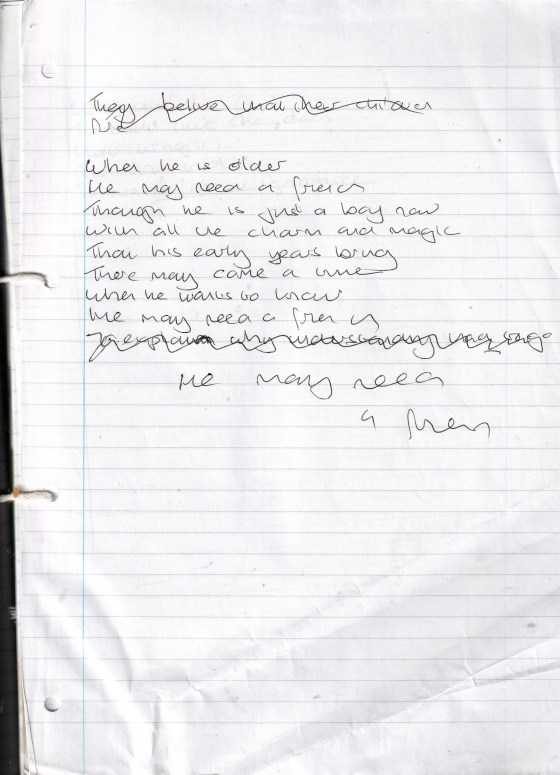 They believe that their children
When he is older
He may need a friend
Though he is just a boy now
With all the charm and magic
That his early years bring
There may come a time
When he wants to know
He may need a friend
To explain why understanding may
He may need
a friend